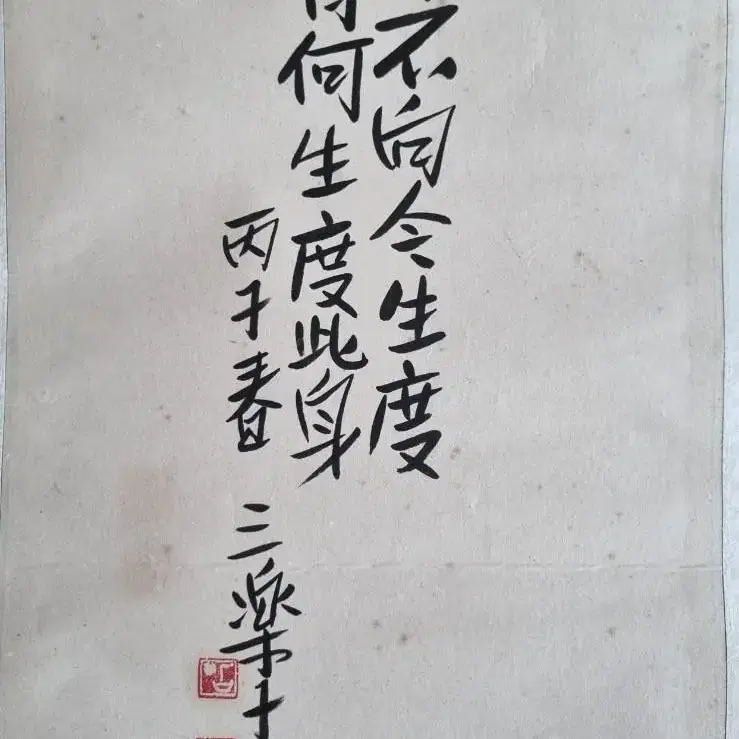 不向今生度
何生度此身
丙子春 三樂